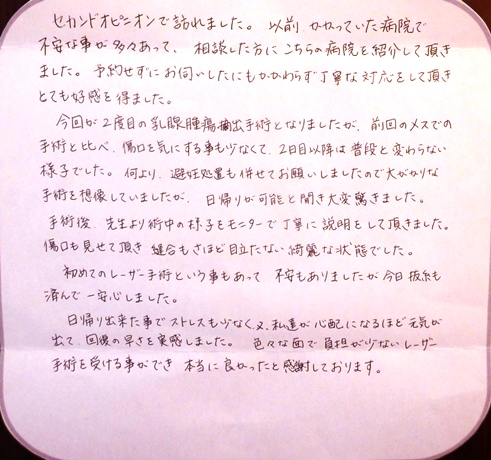 セカンドオピニオンで訪れました。 以前 かかっていた病院で
不安な事が多々あって、 相談した方にこちらの病院を紹介して頂き
ました。 予約せずにお伺いしたにもかかわらず丁寧な対応をして頂き
とても好感を得ました。
今回が2度目の乳腺腫瘍摘出手術となりましたが、前回のメスでの
手術と比べ、傷口を気にする事も少なくて、2日目以降は普段と変わらない
様子でした。 何より、避妊処置も併せてお願いしましたので大がかりな
手術を想像していましたが、 日帰りが可能と聞き大変驚きました。
手術後、先生より術中の様子をモニターで丁寧に説明をして頂きました。
傷口も見せて頂き 縫合もさほど目立たない綺麗な状態でした。
初めてのレーザー手術という事もあって 不安もありましたが今日抜糸も
済んで一安心しました。
日帰り出来た事でストレスも少なく、又、私達が心配になるほど元気が
出て、回復の早さを実感しました。 色々な面で負担が少ないレーザー
手術を受ける事ができ 本当に良かったと感謝しております。